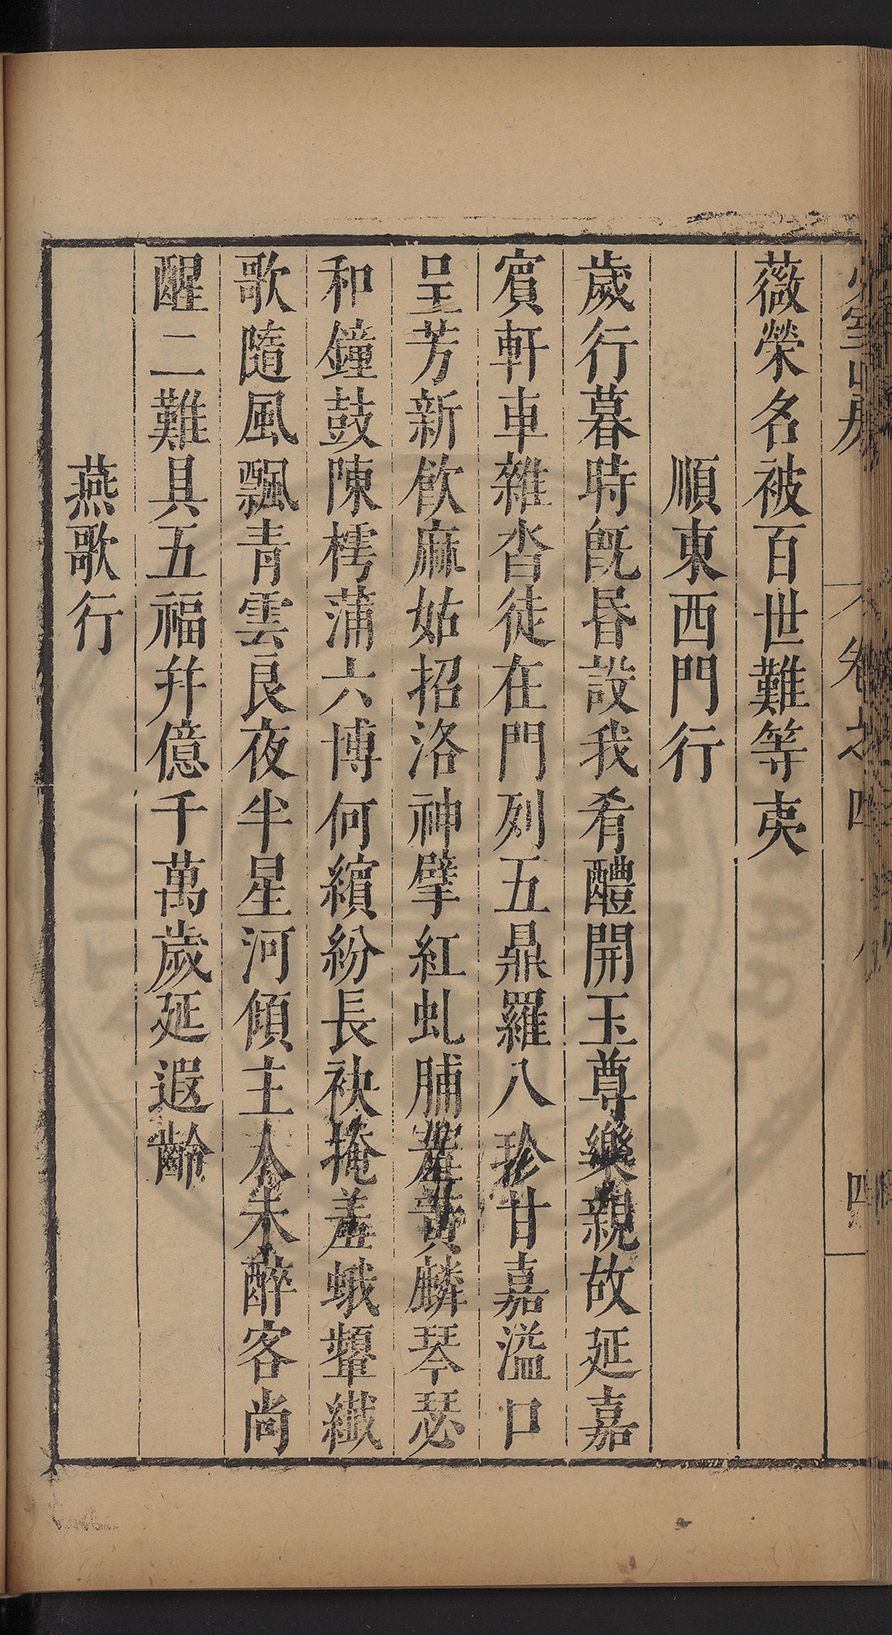 卷之四
四
薇榮名被百世難等夷
順東西門行
歲行暮時旣昏設我肴醴開玉尊樂親故延嘉
賓軒車雜沓徒在門列五鼎羅八珍甘嘉溢口
呈芳新飲麻姑招洛神擘紅虬脯羞黄麟琴瑟
和鐘鼓陳樗蒲六博何繽紛長袂掩羞蛾顰纖
歌隨風飄青雲良夜半星河傾主人未醉客尚
醒二難具五福幷億千萬歲延遐齡
燕歌行